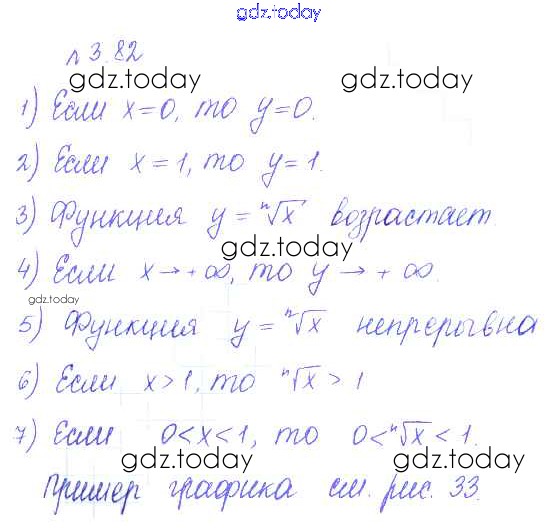 gdz.today
№3.82
gdz.today
1) Если x=0, то y=0.
gdz.today
2) Если x=1, то y=1.
gdz.today
3) Функция y=ⁿ√x возрастает.
gdz.today
4) Если x→+∞, то y→+∞.
gdz.today
5) Функция y=ⁿ√x непрерывна
gdz.today
6) Если x>1, то ⁿ√x>1
gdz.today
7) Если 0<x<1, то 0<ⁿ√x<1.
gdz.today
Пример графика см. рис. 33.
gdz.today